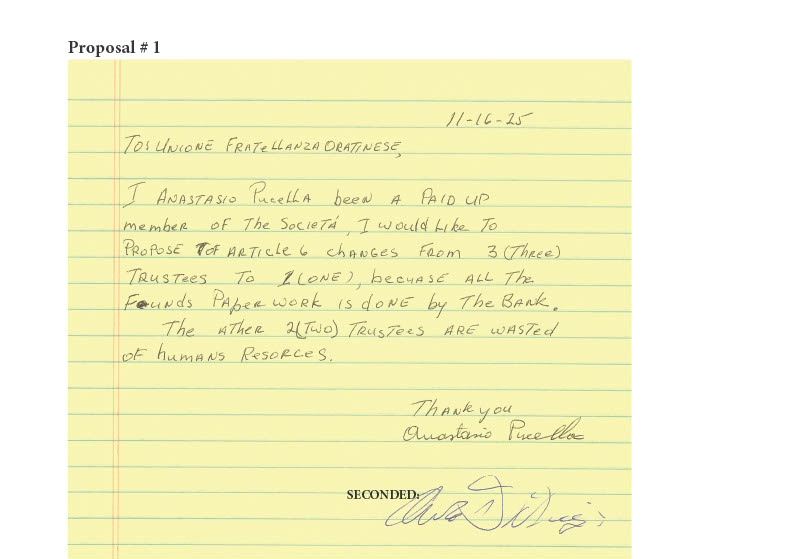 Proposal # 1
11-16-25
TO: UNIONE FRATELLANZA ORATINESE,
I ANASTASIO PUCELLA been A PAID UP
member OF The SocieTá, I would Like To
PROPOSE TOF ARTICLE 6 changes FROM 3 (Three)
TRUSTees To 1 (ONE), becuase ALL The
Founds PAPer WORK is done by The BANK.
The other 2(TWO) TRUSTees ARE WASTED
OF humANS ResoRCes.
Thank you
Anastasio Pucella
SECONDED: